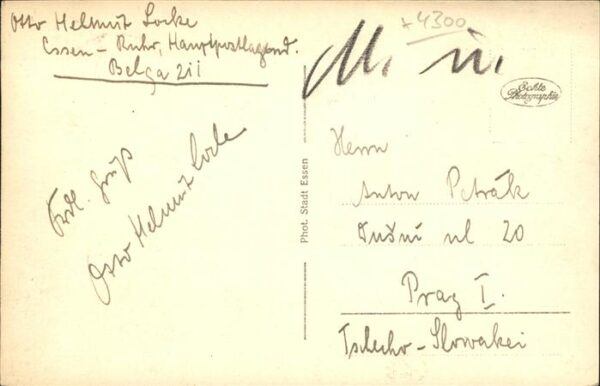 Otto Helmut Locke
Essen - Ruhr, Hauptpostlagernd.
Belga 211
*4300
M. n.
Echte
Photographie
Frdl. Gruß
Otto Helmut Locke
Phot. Stadt Essen
Herrn
Anton Petrák
Dušní ul 20
Prag I.
Tschecho-Slowakei